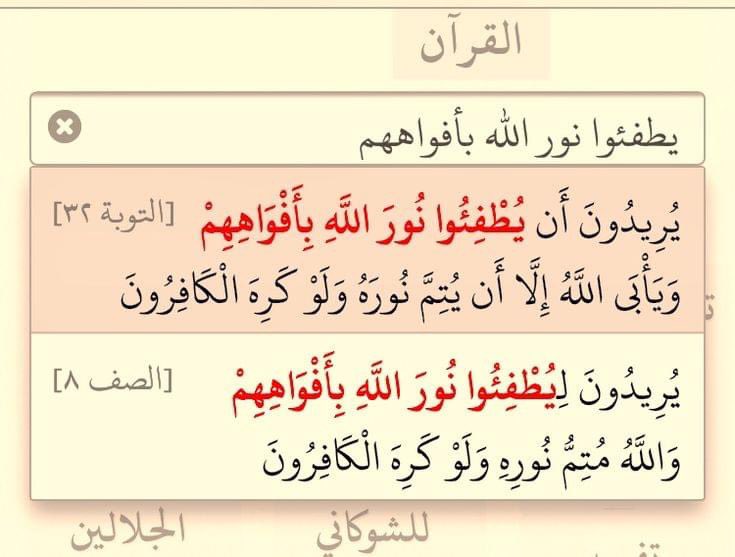 القرآن
يطفئوا نور الله بأفواههم
يُرِيدُونَ أَن يُطْفِئُوا نُورَ اللَّهِ بِأَفْوَاهِهِمْ [التوبة ٣٢]
وَيَأْبَى اللَّهُ إِلَّا أَن يُتِمَّ نُورَهُ وَلَوْ كَرِهَ الْكَافِرُونَ
يُرِيدُونَ لِيُطْفِئُوا نُورَ اللَّهِ بِأَفْوَاهِهِمْ [الصف ٨]
وَاللَّهُ مُتِمُّ نُورِهِ وَلَوْ كَرِهَ الْكَافِرُونَ
للشوكاني الجلالين